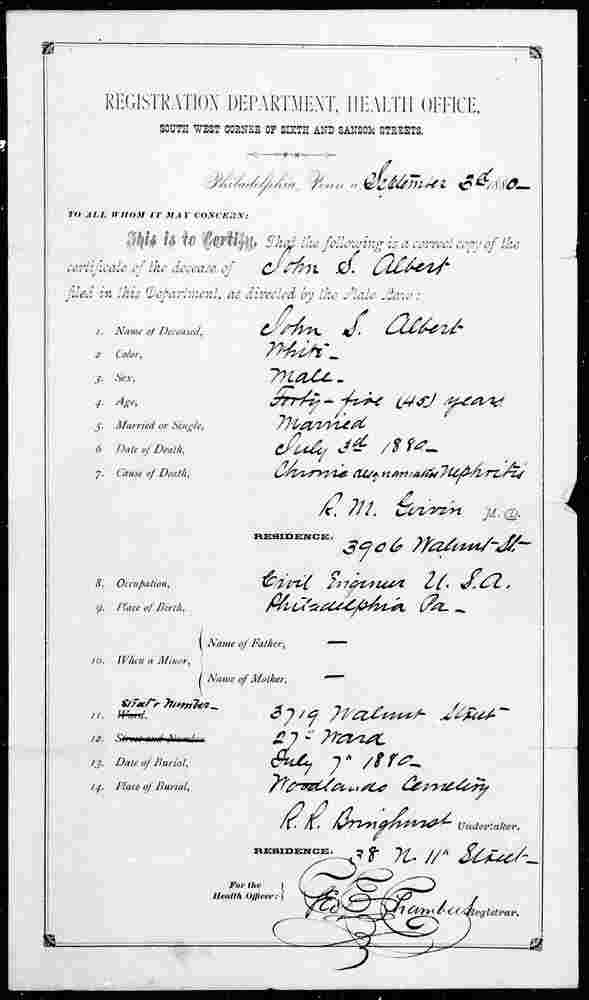 REGISTRATION DEPARTMENT, HEALTH OFFICE,
SOUTH WEST CORNER OF SIXTH AND SANSOM STREETS.
Philadelphia, Penn'a, September 3d 1880-
TO ALL WHOM IT MAY CONCERN:
This is to Certify, That the following is a correct copy of the
certificate of the decease of John S. Albert
filed in this Department, as directed by the State Laws:
1. Name of Deceased, John S. Albert
2 Color, White-
3. Sex, Male-
4. Age, Forty-five (45) years
5. Married or Single, Married
6 Date of Death, July 3d 1880-
7. Cause of Death, Chronic Nephritis
R. M. Girvin M. D.
RESIDENCE. 3906 Walnut St-
8. Occupation, Civil Engineer U.S.A.
9. Place of Birth, Philadelphia Pa-
Name of Father, —
10. When a Minor,
Name of Mother, —
Street & Number-
11. Ward. 3719 Walnut Street
12. Street and Number 27" Ward
13. Date of Burial, July 7" 1880-
14. Place of Burial, Woodlands Cemetery
R. R. Bringhurst Undertaker.
RESIDENCE. 38 N. 11" Street-
For the
Health Officer: Chambers Registrar.